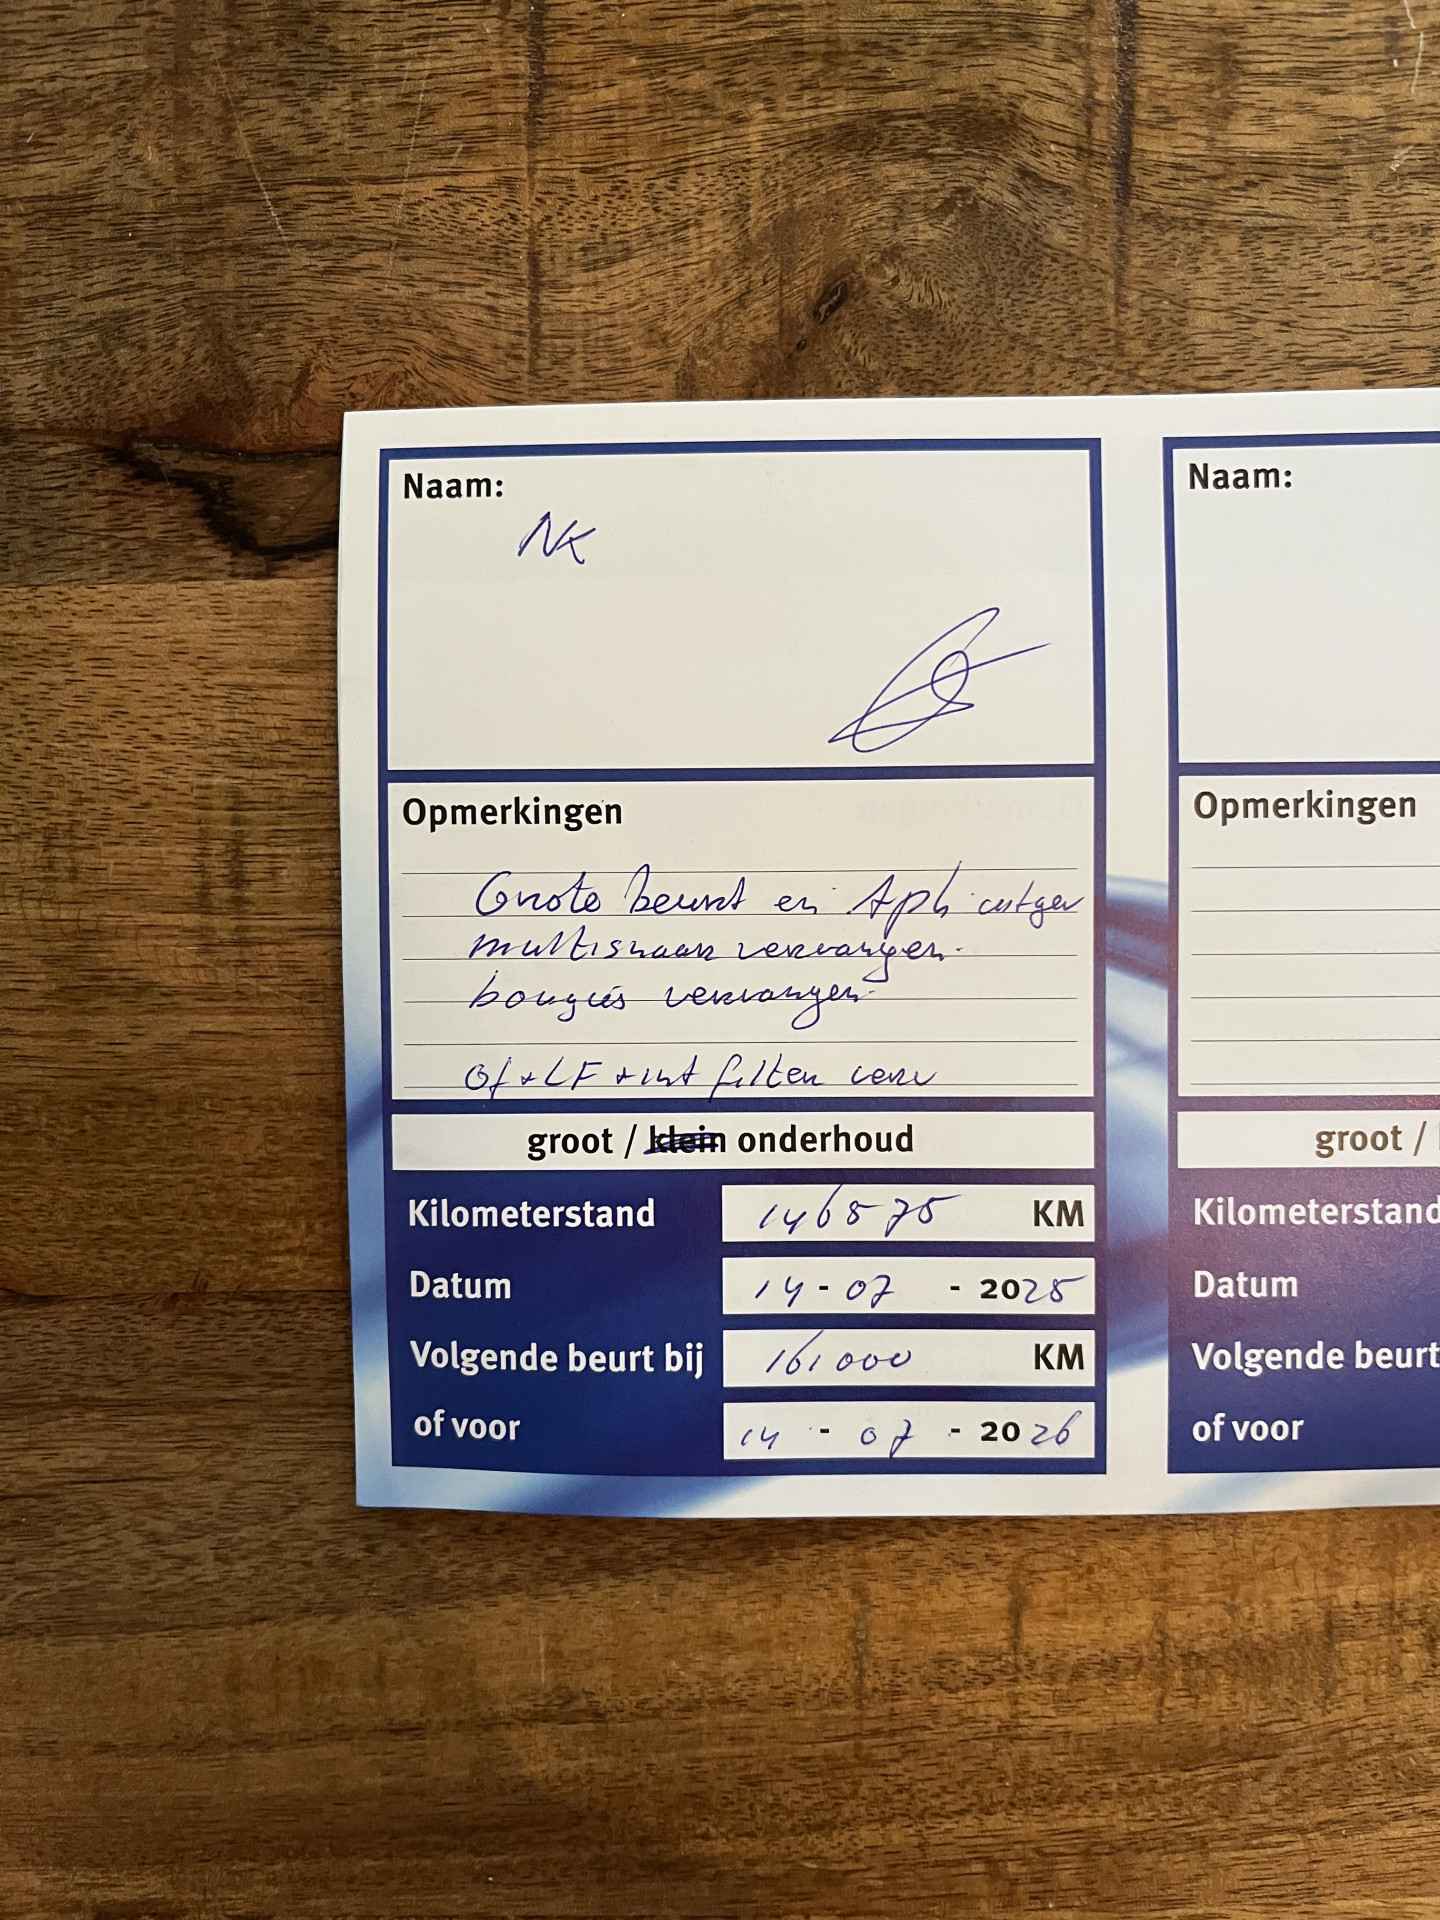 Naam:
NK
Opmerkingen
Grote beurt en Apk uitgev
multisnaar vervangen.
bougies vervangen.
Of + LF + int filter verv
groot / klein onderhoud
Kilometerstand 146575 KM
Datum 14 - 07 - 2025
Volgende beurt bij 161000 KM
of voor 14 - 07 - 2026
Naam:
Opmerkingen
groot /
Kilometerstand
Datum
Volgende beurt
of voor